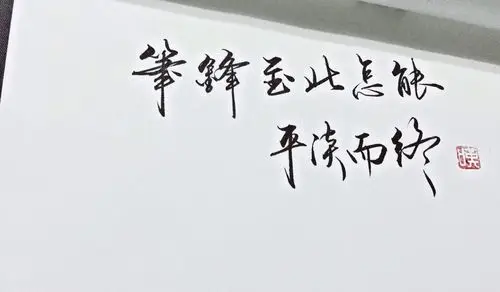 筆鋒至此怎能
平淡而終